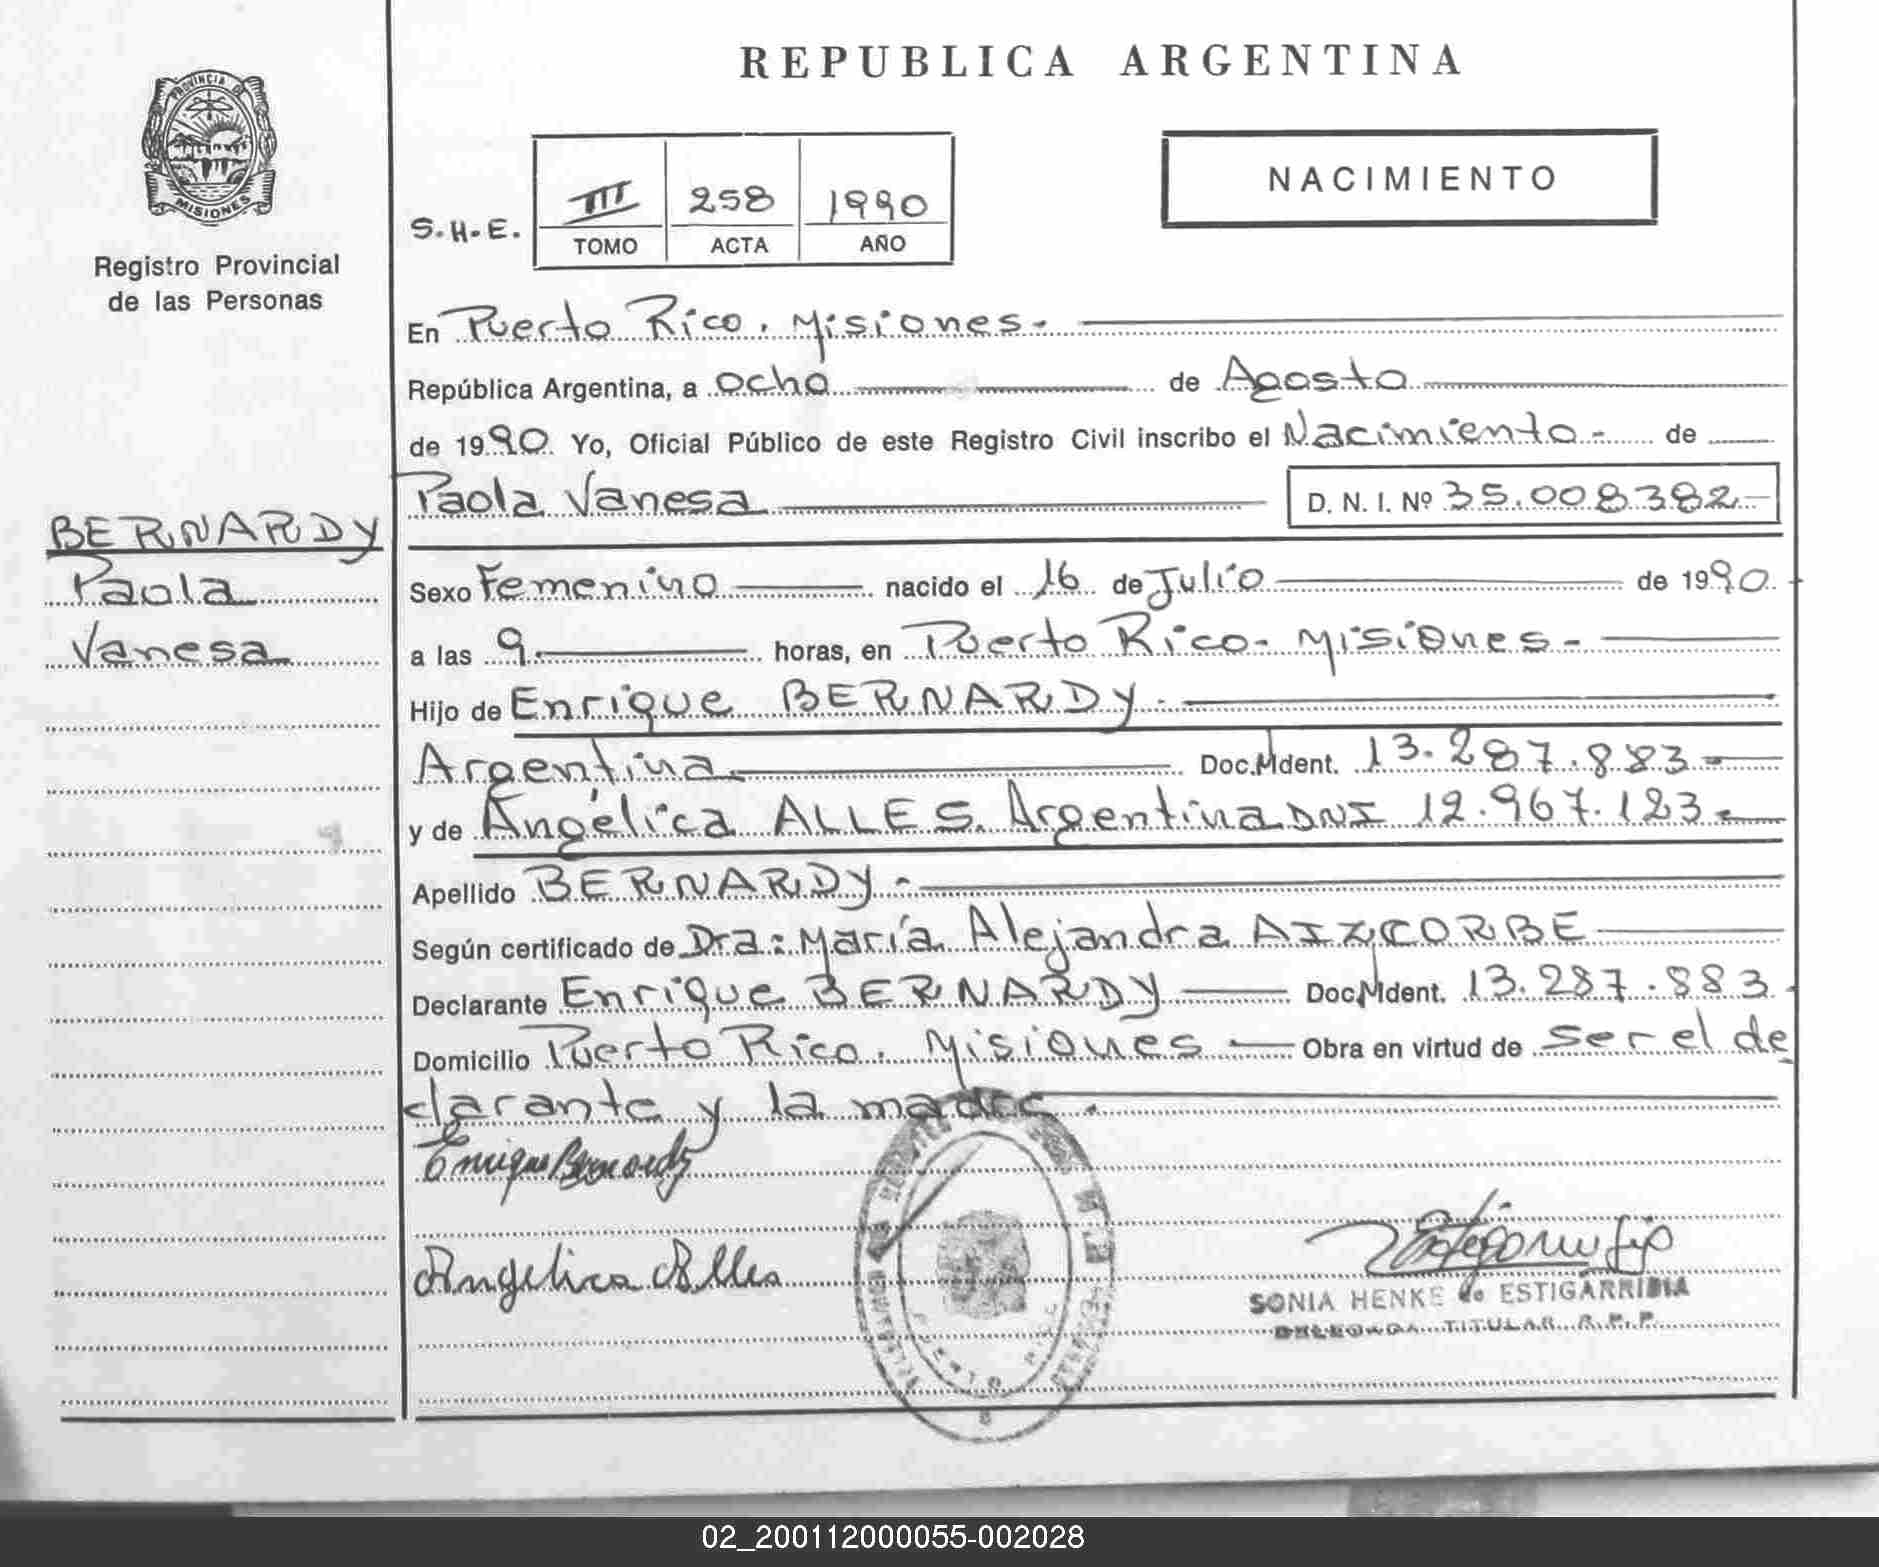 REPUBLICA ARGENTINA
PROVINCIA DE
MISIONES
Registro Provincial
de las Personas
S.H.E.
III 258 1990
TOMO ACTA AÑO
NACIMIENTO
BERNARDY
Paola
Vanesa
En Puerto Rico. Misiones.-
República Argentina, a ocho de Agosto
de 1990 Yo, Oficial Público de este Registro Civil inscribo el Nacimiento- de
Paola Vanesa D. N. I. Nº 35.008382-
Sexo Femenino nacido el 16 de Julio de 1990
a las 9. horas, en Puerto Rico- Misiones-
Hijo de Enrique BERNARDY.
Argentina Doc. Ident. 13.287.883-
y de Angélica ALLES. Argentina DNI 12.967.123-
Apellido BERNARDY-
Según certificado de Dra: María Alejandra AIZCORBE
Declarante Enrique BERNARDY Doc. Ident. 13.287.883-
Domicilio Puerto Rico. Misiones Obra en virtud de ser el de
clarante y la madre.
Enrique Bernardy
Angelica Alles
SONIA HENKE de ESTIGARRIBIA
DELEGADA TITULAR R.P.P.
02_200112000055-002028